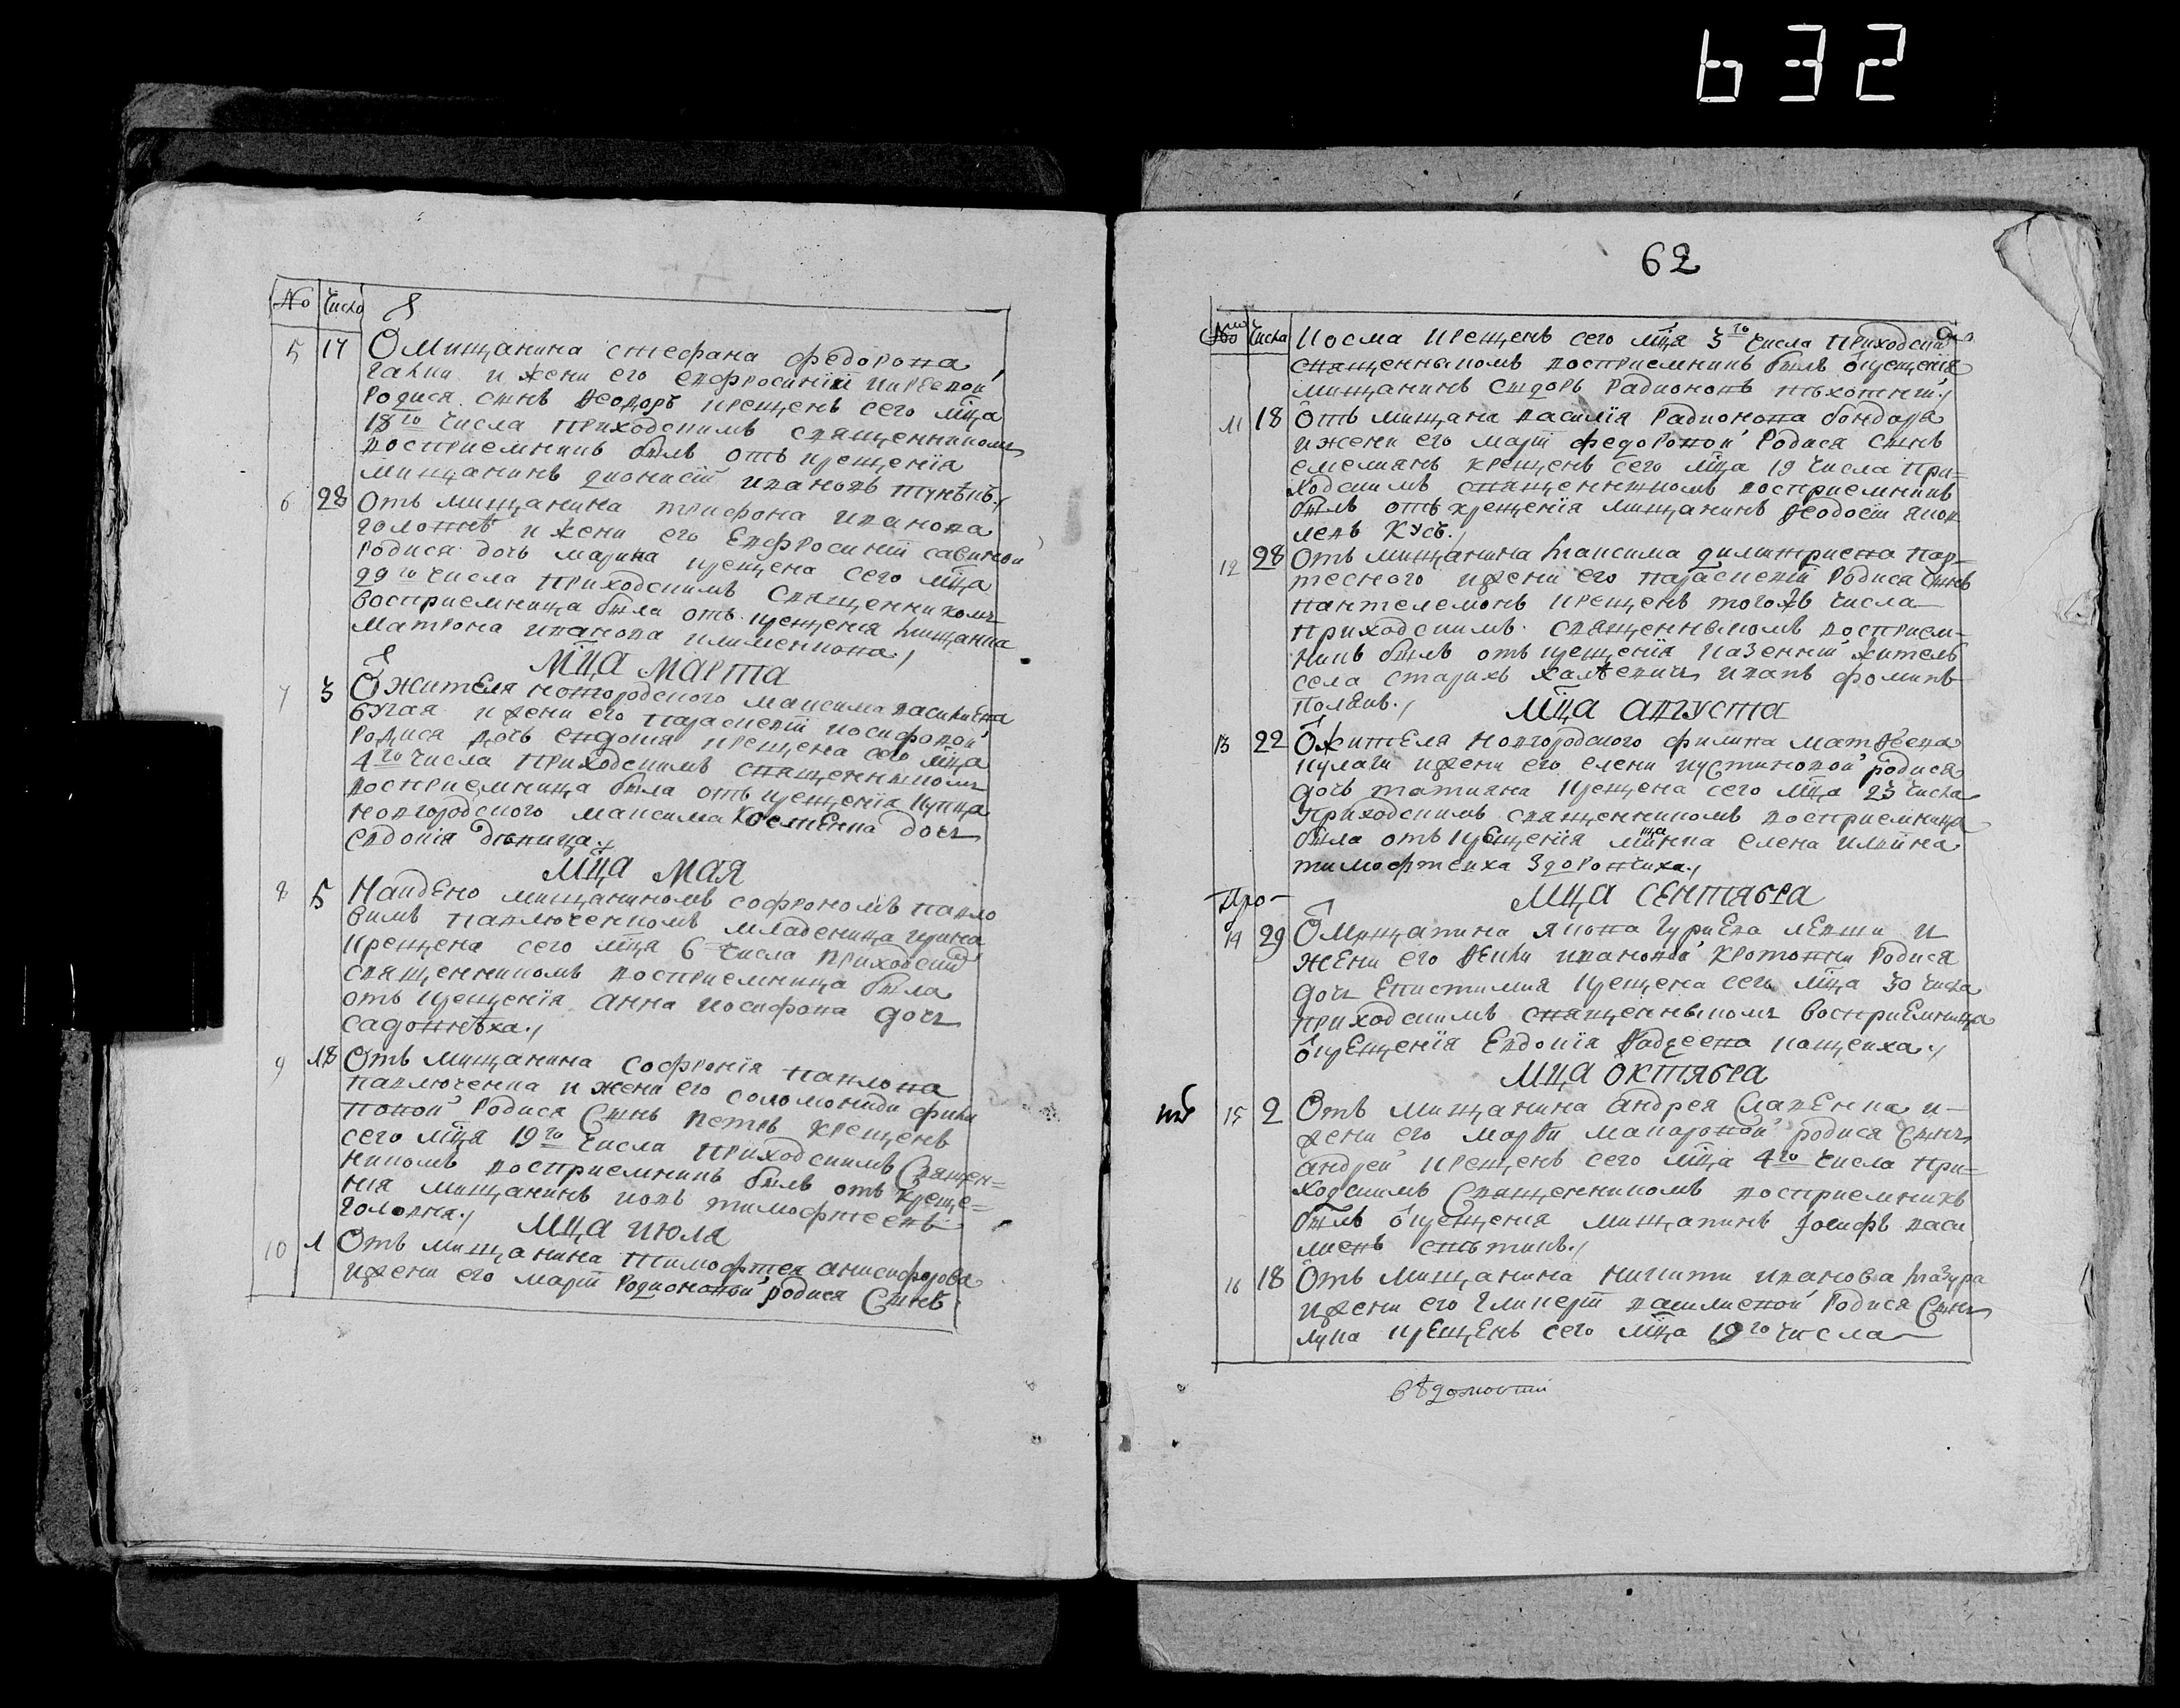 632
№ Число
5 17 Ѿ Мищанина стефана федорова
галки и жени его евфросинїи киреевой
Родися сынъ Ѳеодоръ крещенъ сего мца
18го числа приходскимъ священникомъ
восприемникъ былъ отъ крещенїя
мищанинъ дионисїй ивановъ
6 28 Отъ мищанина трифона иванова
головнѣ и жени его Евфросинїи савиной
Родися дочь марина крещена сего мца
29го числа приходскимъ священникомъ
восприемница была отъ крещенїя мищанка
матрона иванова
Мца Марта
7 3 Ѿ Жителя новгородского максима василиева
бугая и жени его параскевїи иосифовой
Родися дочь евдокия крещена сего мца
4го числа приходскимъ священникомъ
восприемница была отъ крещенїя купца
новгородского максима Костенка дочь
евдокїя дѣвица
Мца Мая
8 5 Найдено мищаниномъ софрономъ павло
вимъ павлюченкомъ младеница ирина
крещена сего мца 6 числа приходским
священникомъ восприемница была
отъ крещенїя анна иосифова дочь
садовнѣха
9 18 Отъ мищанина софронїя павлова
павлюченка и жени его соломониди фили
повой Родися Сынъ петръ крещенъ
сего мца 19го числа приходскимъ Священ=
никомъ восприемникъ былъ отъ креще=
нїя мищанинъ иовъ тимофѣевъ
головня
Мца июля
10 1 Отъ мищанина тимофѣя анисифорова
и жени его марїи Родионовой родися Сынъ
62
№ Числа косма крещенъ сего мца 3го числа приходским
священникомъ восприемникъ былъ ѿ крещенїя
мищанинъ сидоръ радионовъ
11 18 Ѿтъ мищана василїя радионова бондаря
и жени его марїи федоровой Родися сынъ
емелиянъ крещенъ сего мца 19 числа при=
ходскимъ священникомъ восприемникъ
былъ отъ крещенїя мищанинъ Ѳеодосїй яков
левъ Кусъ
12 28 Отъ мищанина максима димитриева пар=
тесного и жени его параскевїи Родися сынъ
пантелемонъ крещенъ тогожъ числа
приходскимъ священникомъ восприем=
никъ былъ отъ крещенїя казенний житель
села старихъ халѣевичъ иванъ фоминъ
Мца августа
13 22 Ѿ жителя новгородского филипа матѳеева
кулаги и жени его елени иустиновой родися
дочь татияна крещена сего мца 23 числа
приходскимъ священникомъ восприемница
была отъ крещенїя мищанка елена илїина
тимофѣиха
Мца сентября
14 29 Ѿ Мищанина якова гуриева левши и
жени его Ѳекли ивановой Родися
дочь Епистимия крещена сего мца 30 числа
приходскимъ священникомъ восприемница
ѿ крещенїя Евдокїя Ѳадѣева кащеиха
Мца октября
15 2 Отъ мищанина андрея и
жени его марѳи макаровой родися сынъ
андрей крещенъ сего мца 4го числа при=
ходскимъ священникомъ восприемникъ
былъ ѿ крещения мищанинъ иосифъ васи
лиевъ
16 18 Отъ мищанина никити иванова мазура
и жени его гликерїи василиевой Родися Сынъ
лука крещенъ сего мца 19го числа